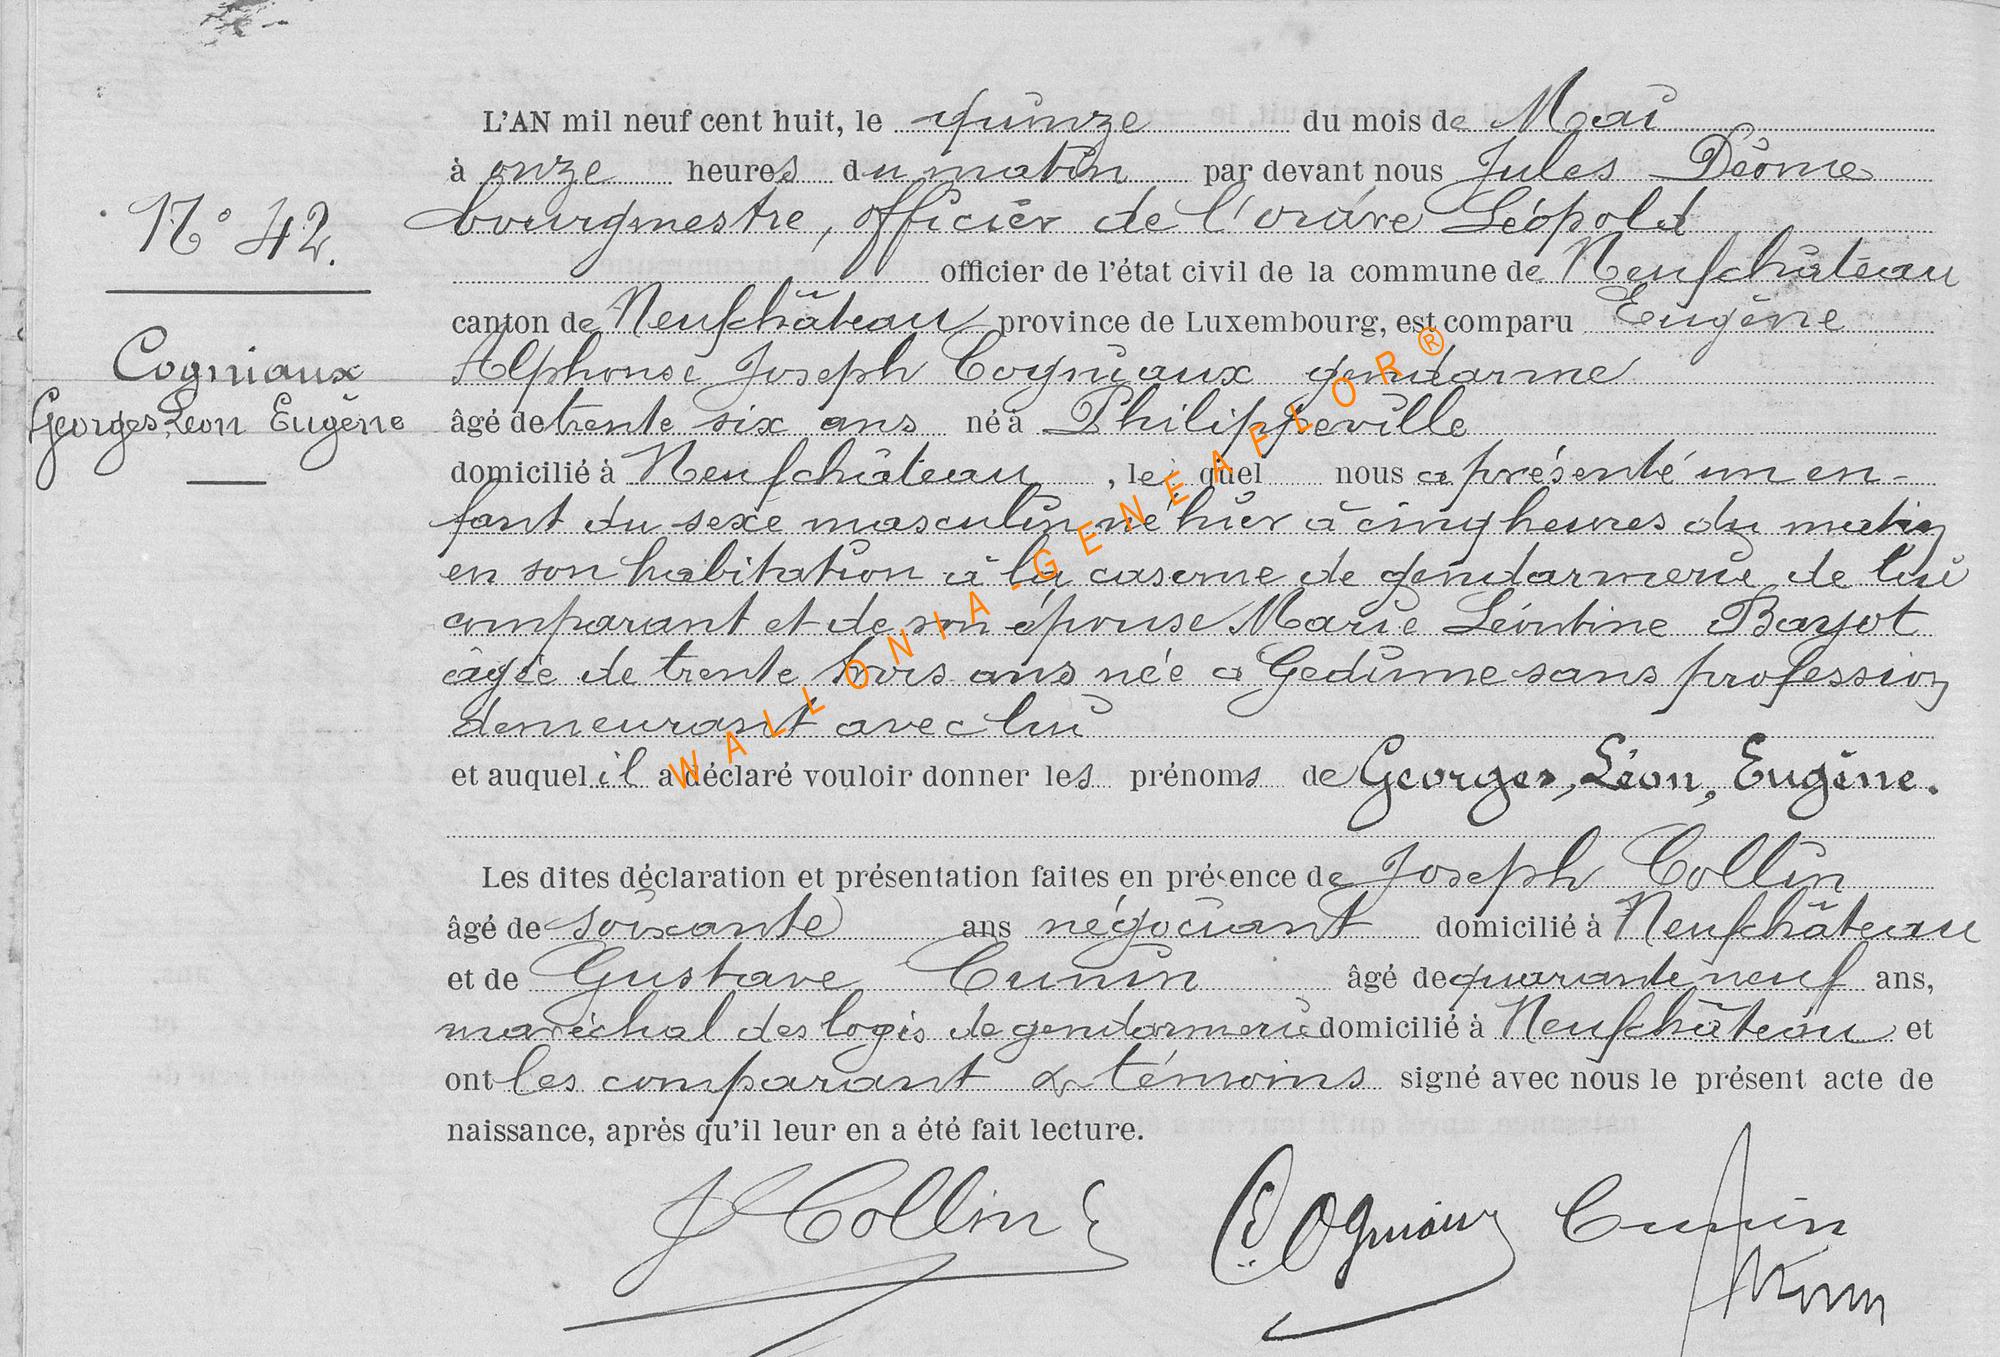 L'AN mil neuf cent huit, le quinze du mois de Mai
à onze heures du matin par devant nous Jules Déome
bourgmestre, officier de l'ordre Léopold
officier de l'état civil de la commune de Neufchâteau
canton de Neufchâteau province de Luxembourg, est comparu Eugène
Alphonse Joseph Cogniaux gendarme
âgé de trente six ans né à Philippeville
domicilié à Neufchâteau, lequel nous a présenté un en-
fant du sexe masculin né hier à cinq heures du matin
en son habitation à la caserne de gendarmerie, de lui
comparant et de son épouse Marie Léontine Bayot
âgée de trente trois ans née à Gedinne sans profession
demeurant avec lui
et auquel il a déclaré vouloir donner les prénoms de Georges, Léon, Eugène.
Les dites déclaration et présentation faites en présence de Joseph Collin
âgé de soixante ans négociant domicilié à Neufchâteau
et de Gustave Cunin âgé de quarante neuf ans,
maréchal des logis de gendarmerie domicilié à Neufchâteau et
ont les comparant & témoins signé avec nous le présent acte de
naissance, après qu'il leur en a été fait lecture.
N° 42.
Cogniaux
Georges, Léon Eugène
J Collin
E. Cogniaux
Cunin
WALLONIA-GENEAFLOR®